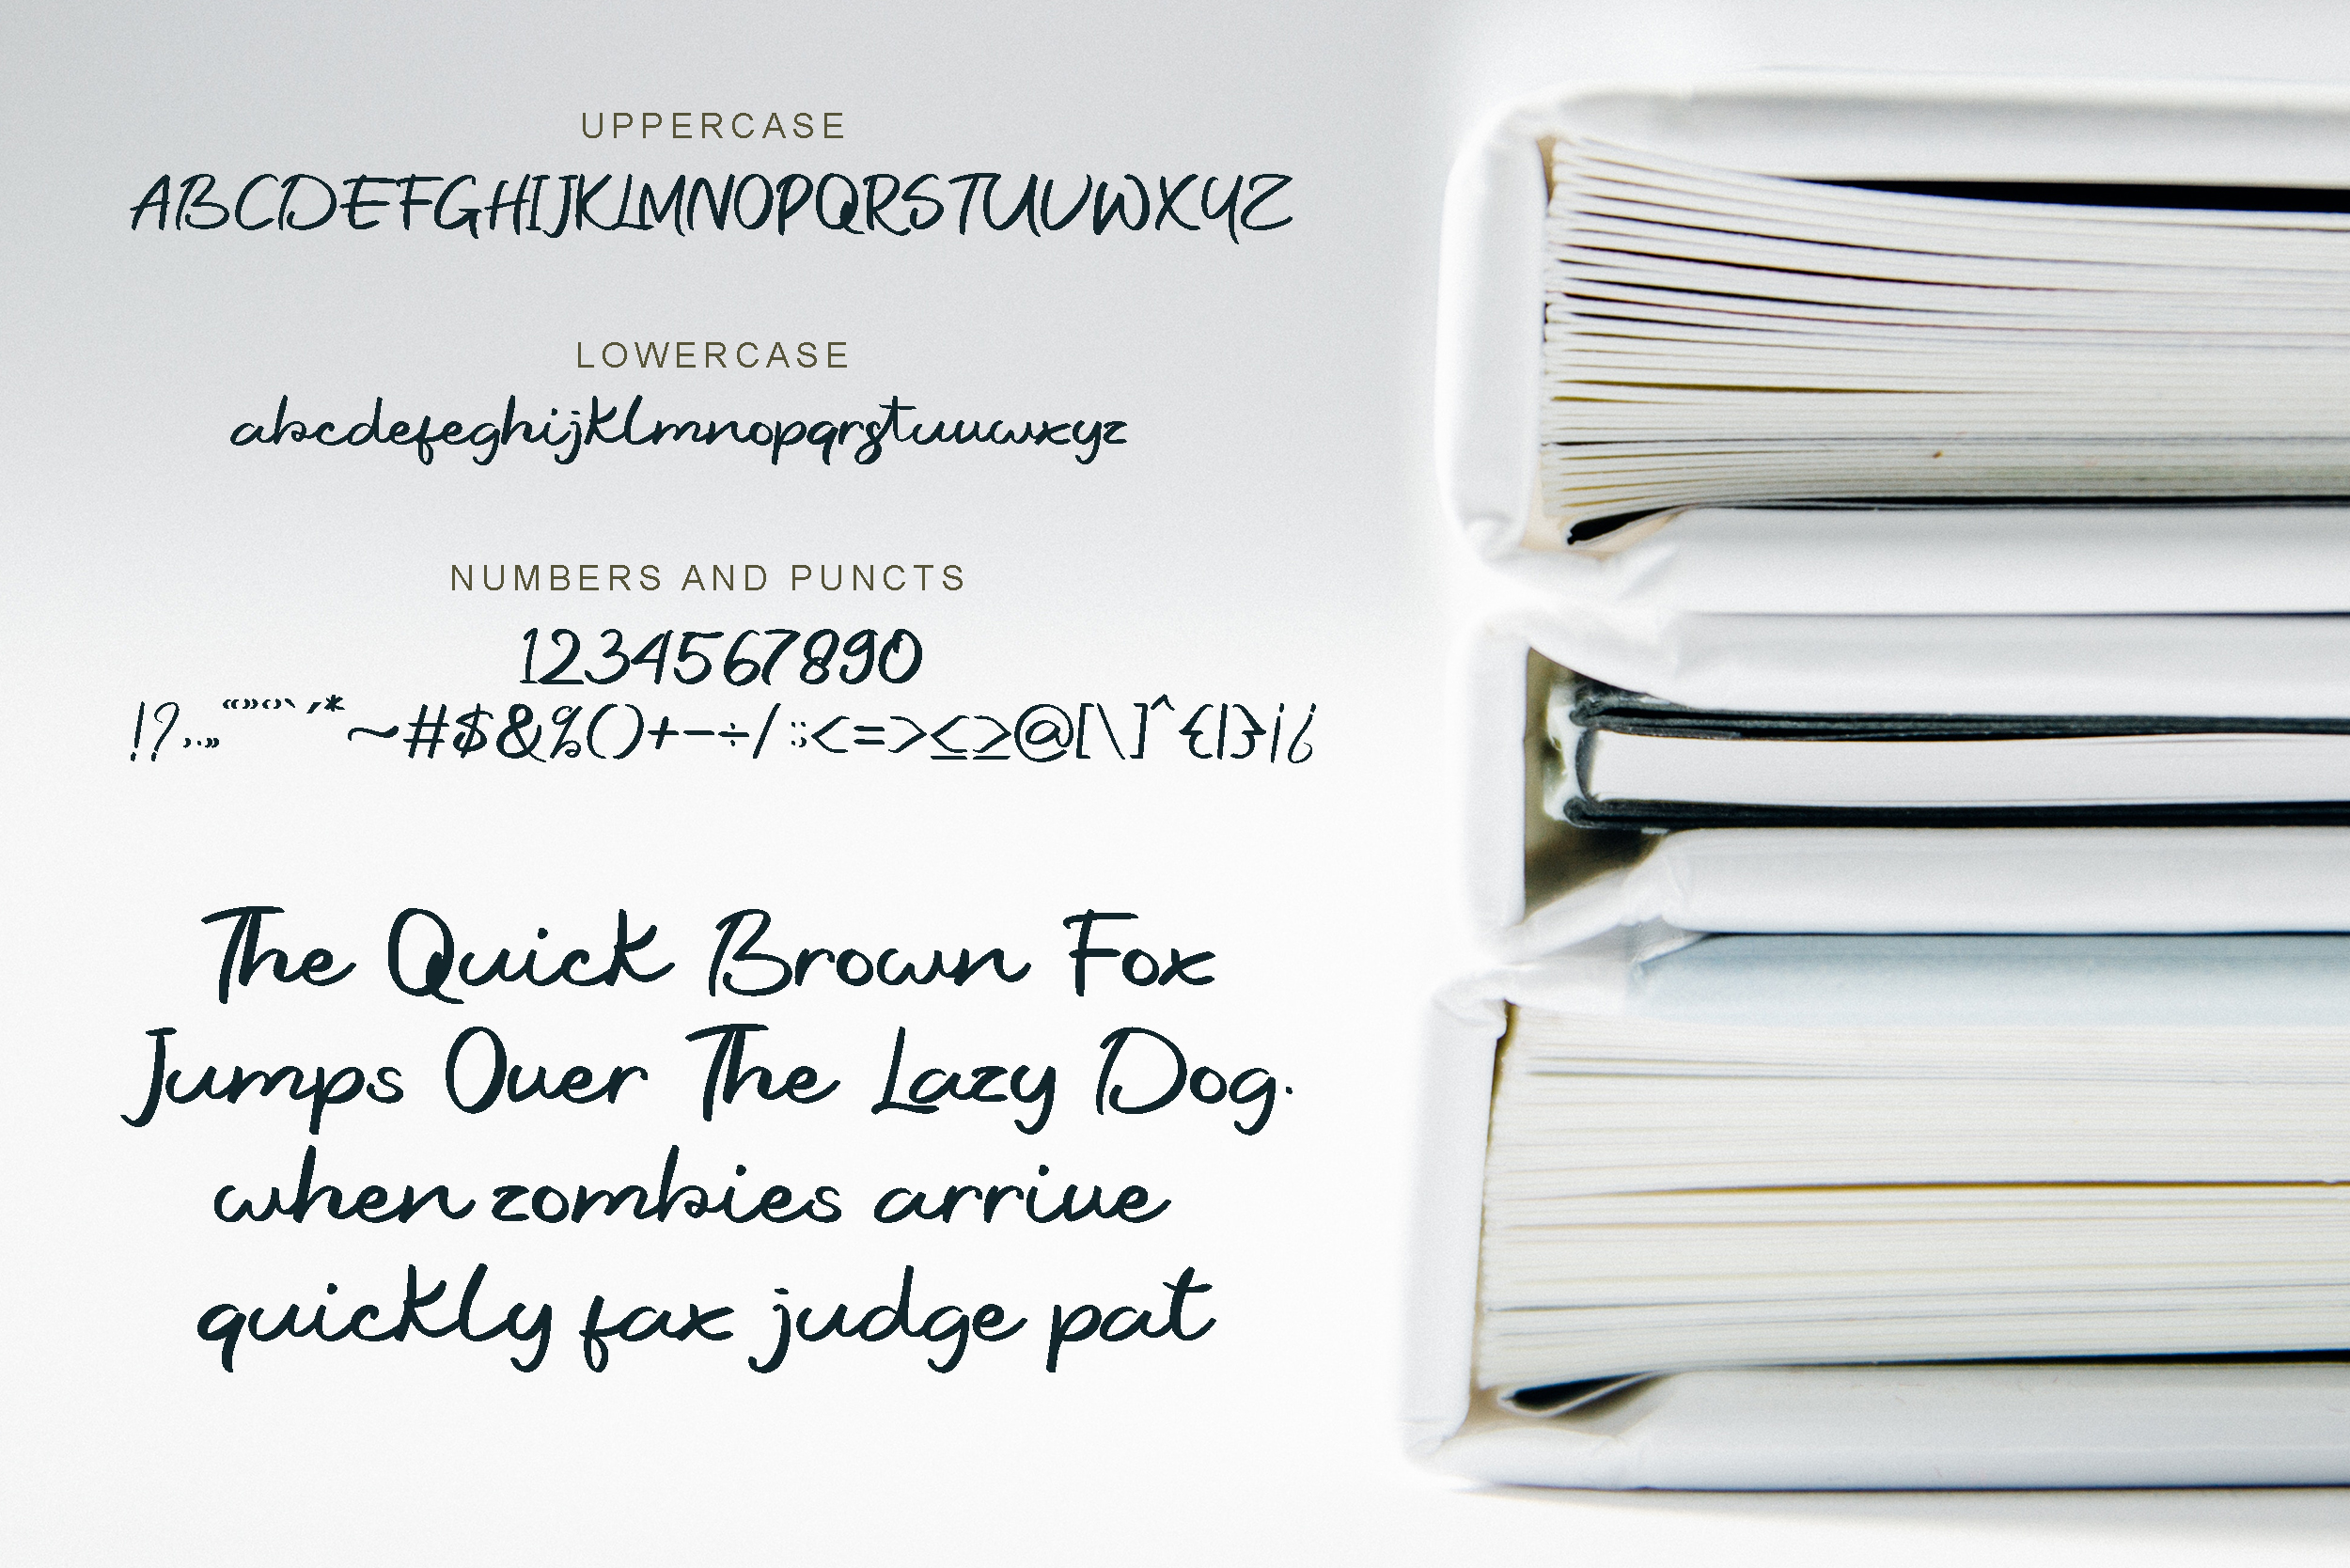 UPPERCASE
ABCDEFGHIJKLMNOPQRSTUVWXYZ
LOWERCASE
abcdefeghijklmnopqrstuvwxyz
NUMBERS AND PUNCTS
1234567890
!?,..,,“”‘’`´*~#$&%()+−÷/:;<=>≤≥@[\]^{|}¡¿
The Quick Brown Fox
Jumps Over The Lazy Dog.
when zombies arrive
quickly fax judge pat